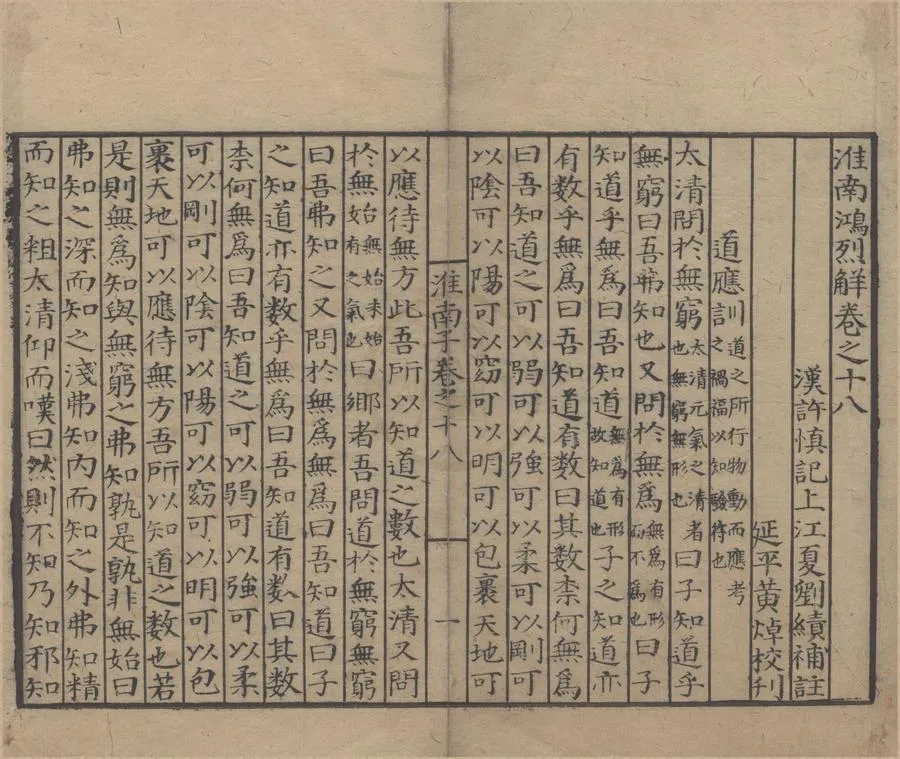 淮南鴻烈解卷之十八
漢許慎記上江夏劉績補註
延平黃焯校刋
道應訓道之所行物動而應考之禍福以知驗符也
太清問於無窮太清元氣之清者也無窮無形也曰子知道乎
無窮曰吾弗知也又問於無爲無爲有形而不爲也曰子
知道乎無爲曰吾知道無爲有形故知道也子之知道亦
有数乎無爲曰吾知道有数曰其数柰何無爲
曰吾知道之可以弱可以強可以柔可以剛可
以隂可以陽可以窈可以明可以包裹天地可
淮南子卷之十八 一
以應待無方此吾所以知道之數也太清又問
於無始無始未始有之氣也曰鄉者吾問道於無窮無窮
曰吾弗知之又問於無爲無爲曰吾知道曰子
之知道亦有数乎無爲曰吾知道有数曰其数
柰何無爲曰吾知道之可以弱可以強可以柔
可以剛可以隂可以陽可以窈可以明可以包
裹天地可以應待無方吾所以知道之数也若
是則無爲知與無窮之弗知孰是孰非無始曰
弗知之深而知之淺弗知内而知之外弗知精
而知之粗太清仰而嘆曰然則不知乃知邪知